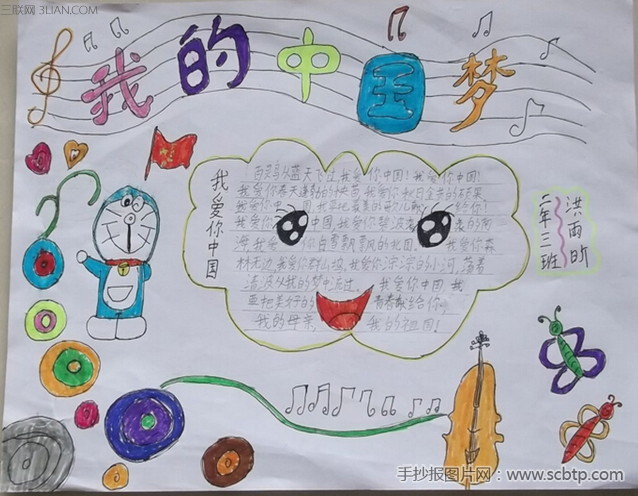 三联网 3LIAN.COM
我的中国梦
我爱你中国
百灵鸟从蓝天飞过,我爱你中国!我爱你中国!
我爱你春天蓬勃的秧苗,我爱你秋日金黄的硕果
我爱你 中国,我爱你碧波
海,我爱 你白雪飘飘的北国, 我爱你森
林无边,我爱你群山 ,我爱你淙淙的小河,荡着
清波从我的梦中流过, 我爱你中国,我
要把美好的 青春献给你,
我的母亲, 我的祖国!
洪雨昕
二年二班
手抄报图片网:www.scbtp.com